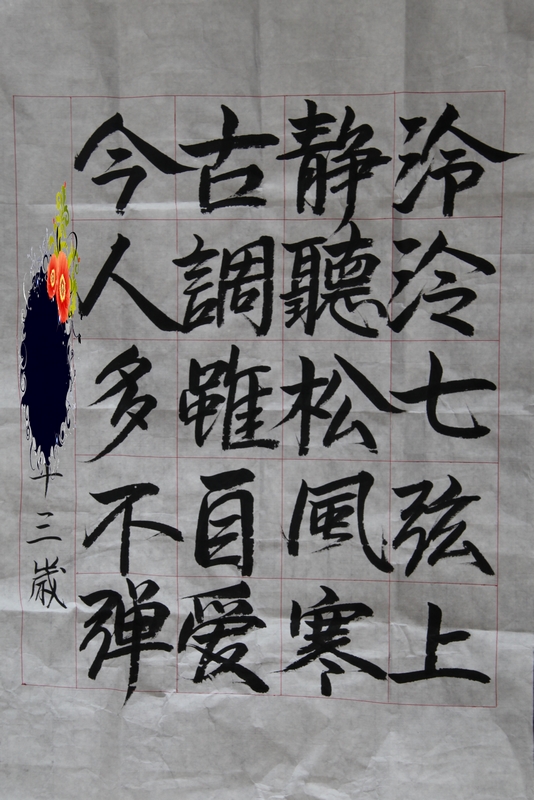 泠泠七弦上
静聽松風寒
古調雖自爱
今人多不弹
十三歲